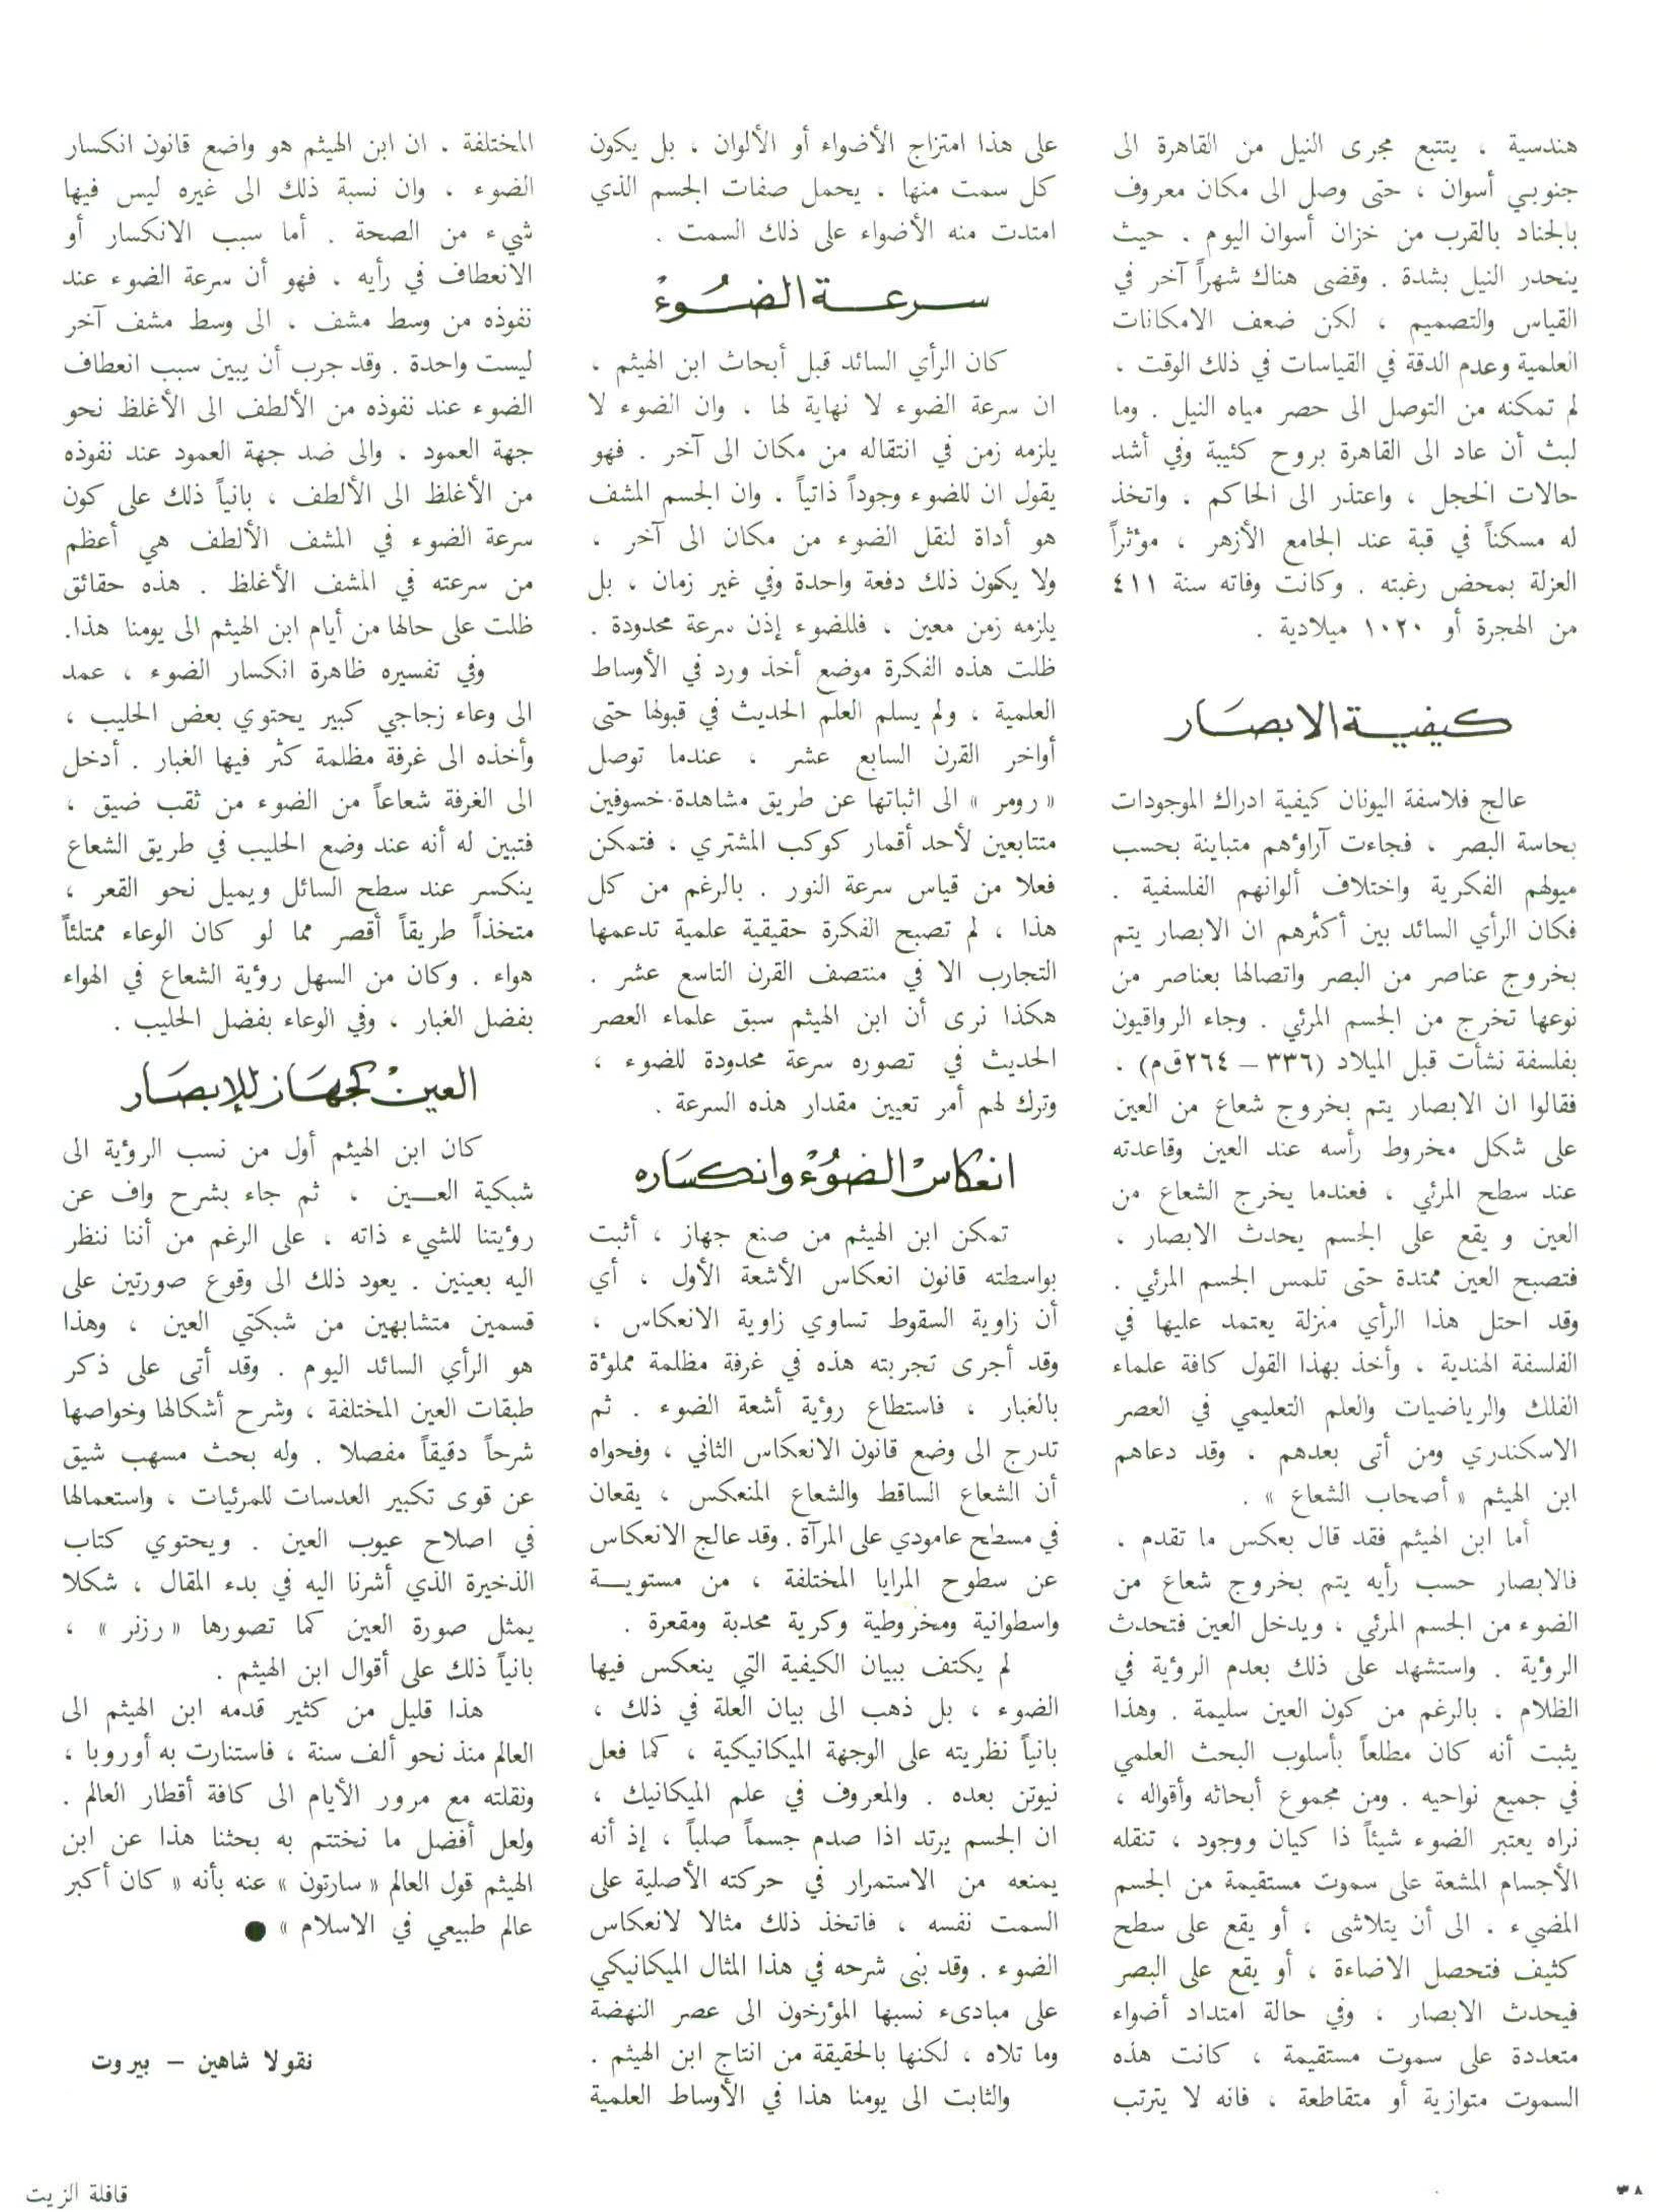 هندسية ، يتتبع مجرى النيل من القاهرة الى
جنوبي أسوان ، حتى وصل الى مكان معروف
بالجناد بالقرب من خزان أسوان اليوم . حيث
ينحدر النيل بشدة . وقضى هناك شهراً آخر في
القياس والتصميم ، لكن ضعف الامكانات
العلمية وعدم الدقة في القياسات في ذلك الوقت ،
لم تمكنه من التوصل الى حصر مياه النيل . وما
لبث أن عاد الى القاهرة بروح كئيبة وفي أشد
حالات الخجل ، واعتذر الى الحاكم ، واتخذ
له مسكناً في قبة عند الجامع الأزهر ، موثراً
العزلة بمحض رغبته . وكانت وفاته سنة ٤١١
من الهجرة أو ١٠٢٠ ميلادية .
كيفية الابصار
عالج فلاسفة اليونان كيفية ادراك الموجودات
بحاسة البصر ، فجاءت آراوهم متباينة بحسب
ميولهم الفكرية واختلاف ألوانهم الفلسفية .
فكان الرأي السائد بين أكثرهم ان الابصار يتم
بخروج عناصر من البصر واتصالها بعناصر من
نوعها تخرج من الجسم المرئي . وجاء الرواقيون
بفلسفة نشأت قبل الميلاد (٣٣٦ – ٢٦٤ق م) ،
فقالوا ان الابصار يتم بخروج شعاع من العين
على شكل مخروط رأسه عند العين وقاعدته
عند سطح المرئي ، فعندما يخرج الشعاع من
العين و يقع على الجسم يحدث الابصار ،
فتصبح العين ممتدة حتى تلمس الجسم المرئي .
وقد احتل هذا الرأي منزلة يعتمد عليها في
الفلسفة الهندية ، وأخذ بهذا القول كافة علماء
الفلك والرياضيات والعلم التعليمي في العصر
الاسكندري ومن أتى بعدهم ، وقد دعاهم
ابن الهيثم « أصحاب الشعاع » .
أما ابن الهيثم فقد قال بعكس ما تقدم ،
فالابصار حسب رأيه يتم بخروج شعاع من
الضوء من الجسم المرئي ، ويدخل العين فتحدث
الروية . واستشهد على ذلك بعدم الروية في
الظلام ، بالرغم من كون العين سليمة . وهذا
يثبت أنه كان مطلعاً بأسلوب البحث العلمي
في جميع نواحيه . ومن مجموع أبحاثه وأقواله ،
نراه يعتبر الضوء شيئاً ذا كيان ووجود ، تنقله
الأجسام المشعة على سموت مستقيمة من الجسم
المضيء . الى أن يتلاشى ، أو يقع على سطح
كثيف فتحصل الاضاءة ، أو يقع على البصر
فيحدث الابصار . وفي حالة امتداد أضواء
متعددة على سموت مستقيمة ، كانت هذه
السموت متوازية أو متقاطعة ، فانه لا يترتب
على هذا امتزاج الأضواء أو الألوان ، بل يكون
كل سمت منها ، يحمل صفات الجسم الذي
امتدت منه الأضواء على ذلك السمت .
سرعة الضوء
كان الرأي السائد قبل أبحاث ابن الهيثم ،
ان سرعة الضوء لا نهاية لها ، وان الضوء لا
يلزمه زمن في انتقاله من مكان الى آخر . فهو
يقول ان للضوء وجوداً ذاتياً ، وان الجسم المشف
هو أداة لنقل الضوء من مكان الى آخر ،
ولا يكون ذلك دفعة واحدة وفي غير زمان ، بل
يلزمه زمن معين ، فللضوء إذن سرعة محدودة .
ظلت هذه الفكرة موضع أخذ ورد في الأوساط
العلمية ، ولم يسلم العلم الحديث في قبولها حتى
أواخر القرن السابع عشر ، عندما توصل
« رومر » الى اثباتها عن طريق مشاهدة خسوفين
متتابعين لأحد أقمار كوكب المشتري ، فتمكن
فعلا من قياس سرعة النور . بالرغم من كل
هذا ، لم تصبح الفكرة حقيقية علمية تدعمها
التجارب الا في منتصف القرن التاسع عشر .
هكذا نرى أن ابن الهيثم سبق علماء العصر
الحديث في تصوره سرعة محدودة للضوء ،
وترك لهم أمر تعيين مقدار هذه السرعة .
انعكاس الضوء وانكساره
تمكن ابن الهيثم من صنع جهاز ، أثبت
بواسطته قانون انعكاس الأشعة الأول ، أي
أن زاوية السقوط تساوي زاوية الانعكاس ،
وقد أجرى تجربته هذه في غرفة مظلمة مملوؤة
بالغبار ، فاستطاع روٴية أشعة الضوء . ثم
تدرج الى وضع قانون الانعكاس الثاني ، وفحواه
أن الشعاع الساقط والشعاع المنعكس ، يقعان
في مسطح عامودي على المرآة . وقد عالج الانعكاس
عن سطوح المرايا المختلفة ، من مستويـــة
واسطوانية ومخروطية وكرية محدبة ومقعرة .
لم يكتف ببيان الكيفية التي ينعكس فيها
الضوء ، بل ذهب الى بيان العلة في ذلك ،
بانياً نظريته على الوجهة الميكانيكية ، كما فعل
نيوتن بعده . والمعروف في علم الميكانيك ،
ان الجسم يرتد اذا صدم جسماً صلباً ، إذ أنه
يمنعه من الاستمرار في حركته الأصلية على
السمت نفسه ، فاتخذ ذلك مثالا لانعكاس
الضوء . وقد بنى شرحه في هذا المثال الميكانيكي
على مبادىء نسبها المؤرخون الى عصر النهضة
وما تلاه ، لكنها بالحقيقة من انتاج ابن الهيثم .
والثابت الى يومنا هذا في الأوساط العلمية
المختلفة . ان ابن الهيثم هو واضع قانون انكسار
الضوء ، وان نسبة ذلك الى غيره ليس فيها
شيء من الصحة . أما سبب الانكسار أو
الانعطاف في رأيه ، فهو أن سرعة الضوء عند
نفوذه من وسط مشف ، الى وسط مشف آخر
ليست واحدة . وقد جرب أن يبين سبب انعطاف
الضوء عند نفوذه من الألطف الى الأغلظ نحو
جهة العمود ، والى ضد جهة العمود عند نفوذه
من الأغلظ الى الألطف ، بانياً ذلك على كون
سرعة الضوء في المشف الألطف هي أعظم
من سرعته في المشف الأغلظ . هذه حقائق
ظلت على حالها من أيام ابن الهيثم الى يومنا هذا.
وفي تفسيره ظاهرة انكسار الضوء ، عمد
الى وعاء زجاجي كبير يحتوي بعض الحليب ،
وأخذه الى غرفة مظلمة كثر فيها الغبار . أدخل
الى الغرفة شعاعاً من الضوء من ثقب ضيق ،
فتبين له أنه عند وضع الحليب في طريق الشعاع
ينكسر عند سطح السائل ويميل نحو القعر ،
متخذاً طريقاً أقصر مما لو كان الوعاء ممتلئاً
هواء . وكان من السهل رؤية الشعاع في الهواء
بفضل الغبار ، وفي الوعاء بفضل الحليب .
العين كجهاز للإبصار
كان ابن الهيثم أول من نسب الرؤية الى
شبكية العـــين ، ثم جاء بشرح واف عن
رؤيتنا للشيء ذاته ، على الرغم من أننا ننظر
اليه بعينين . يعود ذلك الى وقوع صورتين على
قسمين متشابهين من شبكتي العين ، وهذا
هو الرأي السائد اليوم . وقد أتى على ذكر
طبقات العين المختلفة ، وشرح أشكالها وخواصها
شرحاً دقيقاً مفصلا . وله بحث مسهب شيق
عن قوى تكبير العدسات للمرئيات ، واستعمالها
في اصلاح عيوب العين . ويحتوي كتاب
الذخيرة الذي أشرنا اليه في بدء المقال ، شكلا
يمثل صورة العين كما تصورها « رزنر » ،
بانياً ذلك على أقوال ابن الهيثم .
هذا قليل من كثير قدمه ابن الهيثم الى
العالم منذ نحو ألف سنة ، فاستنارت به أوروبا ،
ونقلته مع مرور الأيام الى كافة أقطار العالم .
ولعل أفضل ما نختتم به بحثنا هذا عن ابن
الهيثم قول العالم « سارتون » عنه بأنه « كان أكبر
عالم طبيعي في الاسلام » ●
نقولا شاهين – بيروت
٣٨
قافلة الزيت